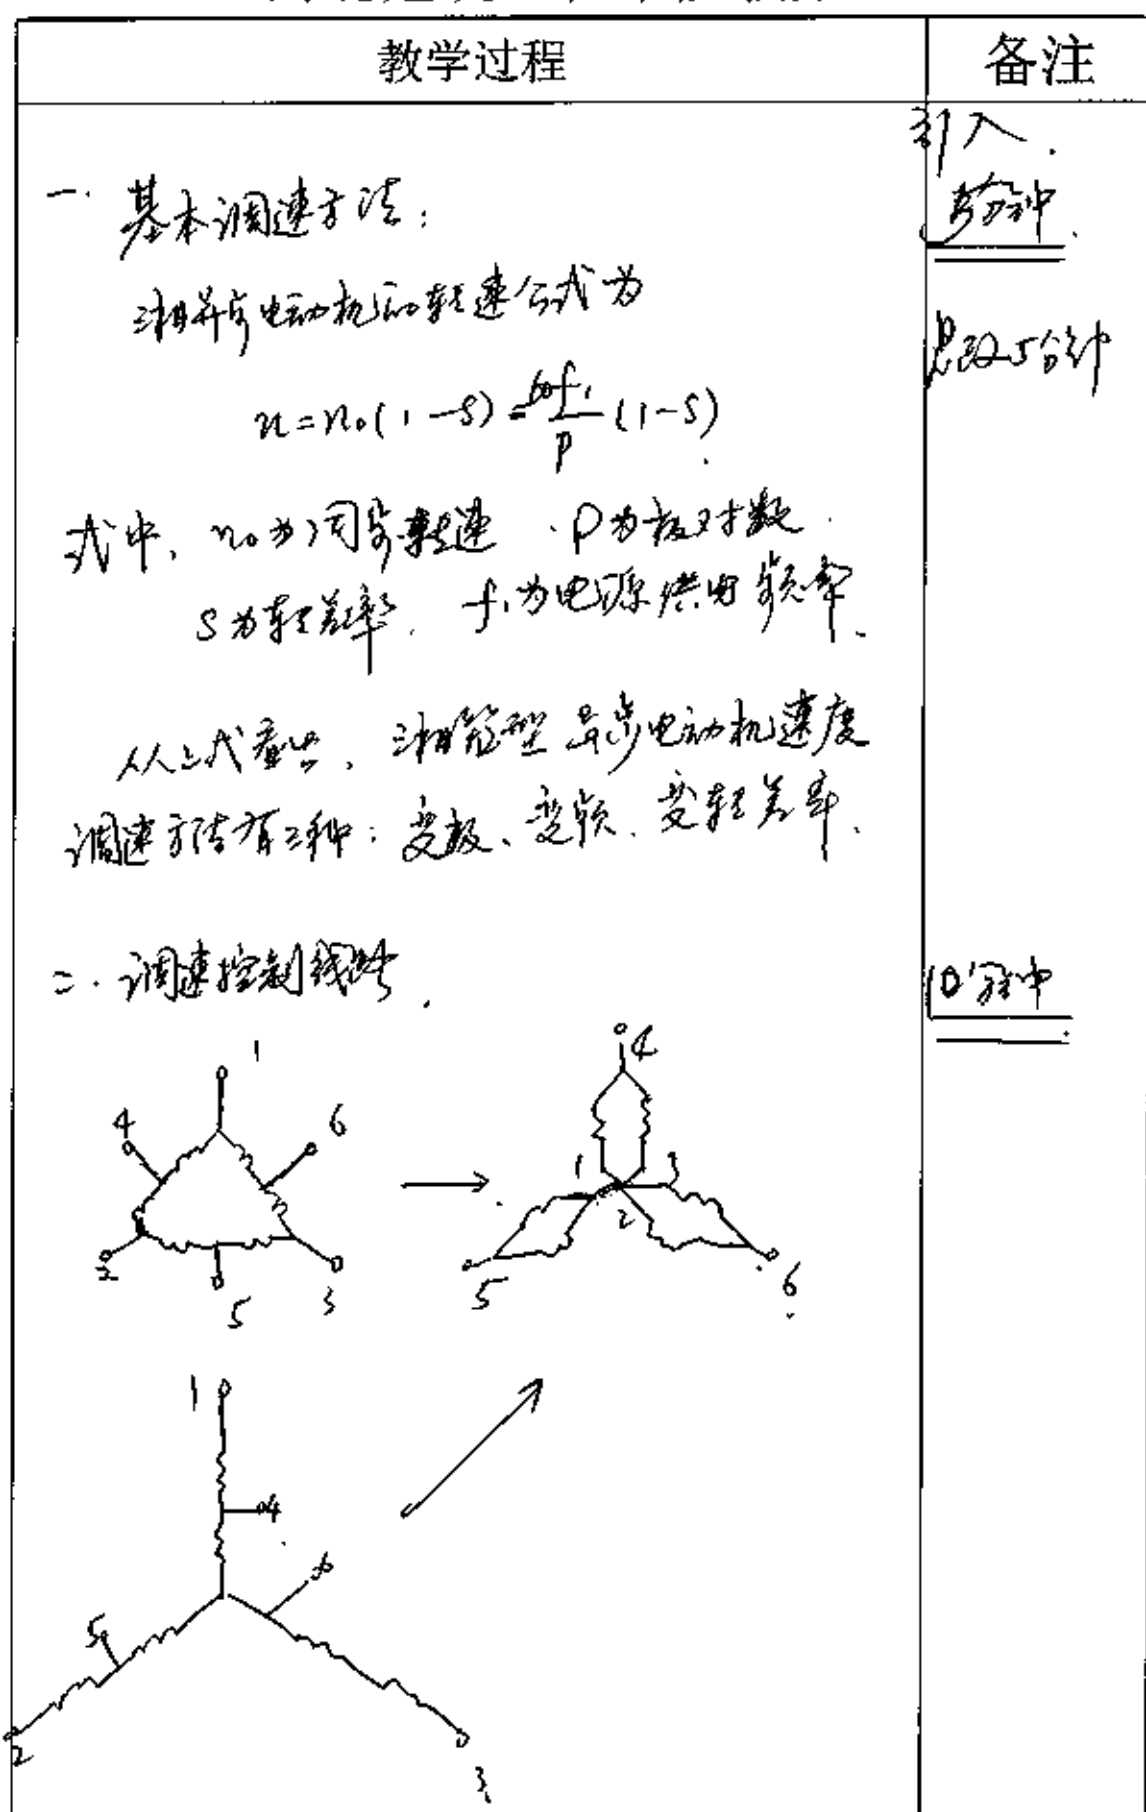 教学过程
备注
引入.
5分钟.
一. 基本调速方法:
三相异步电动机的转速公式为
思政5分钟
n=n₀(1-S)=60f₁/P (1-S)
式中, n₀为同步转速. P为极对数.
S为转差率. f₁为电源供电频率.
从上式看出, 三相笼型异步电动机速度
调速方法有三种: 变极、变频、变转差率.
二. 调速控制线路.
10分钟
1
4
6
2
5
3
4
1
3
2
5
6
1
4
6
5
2
3